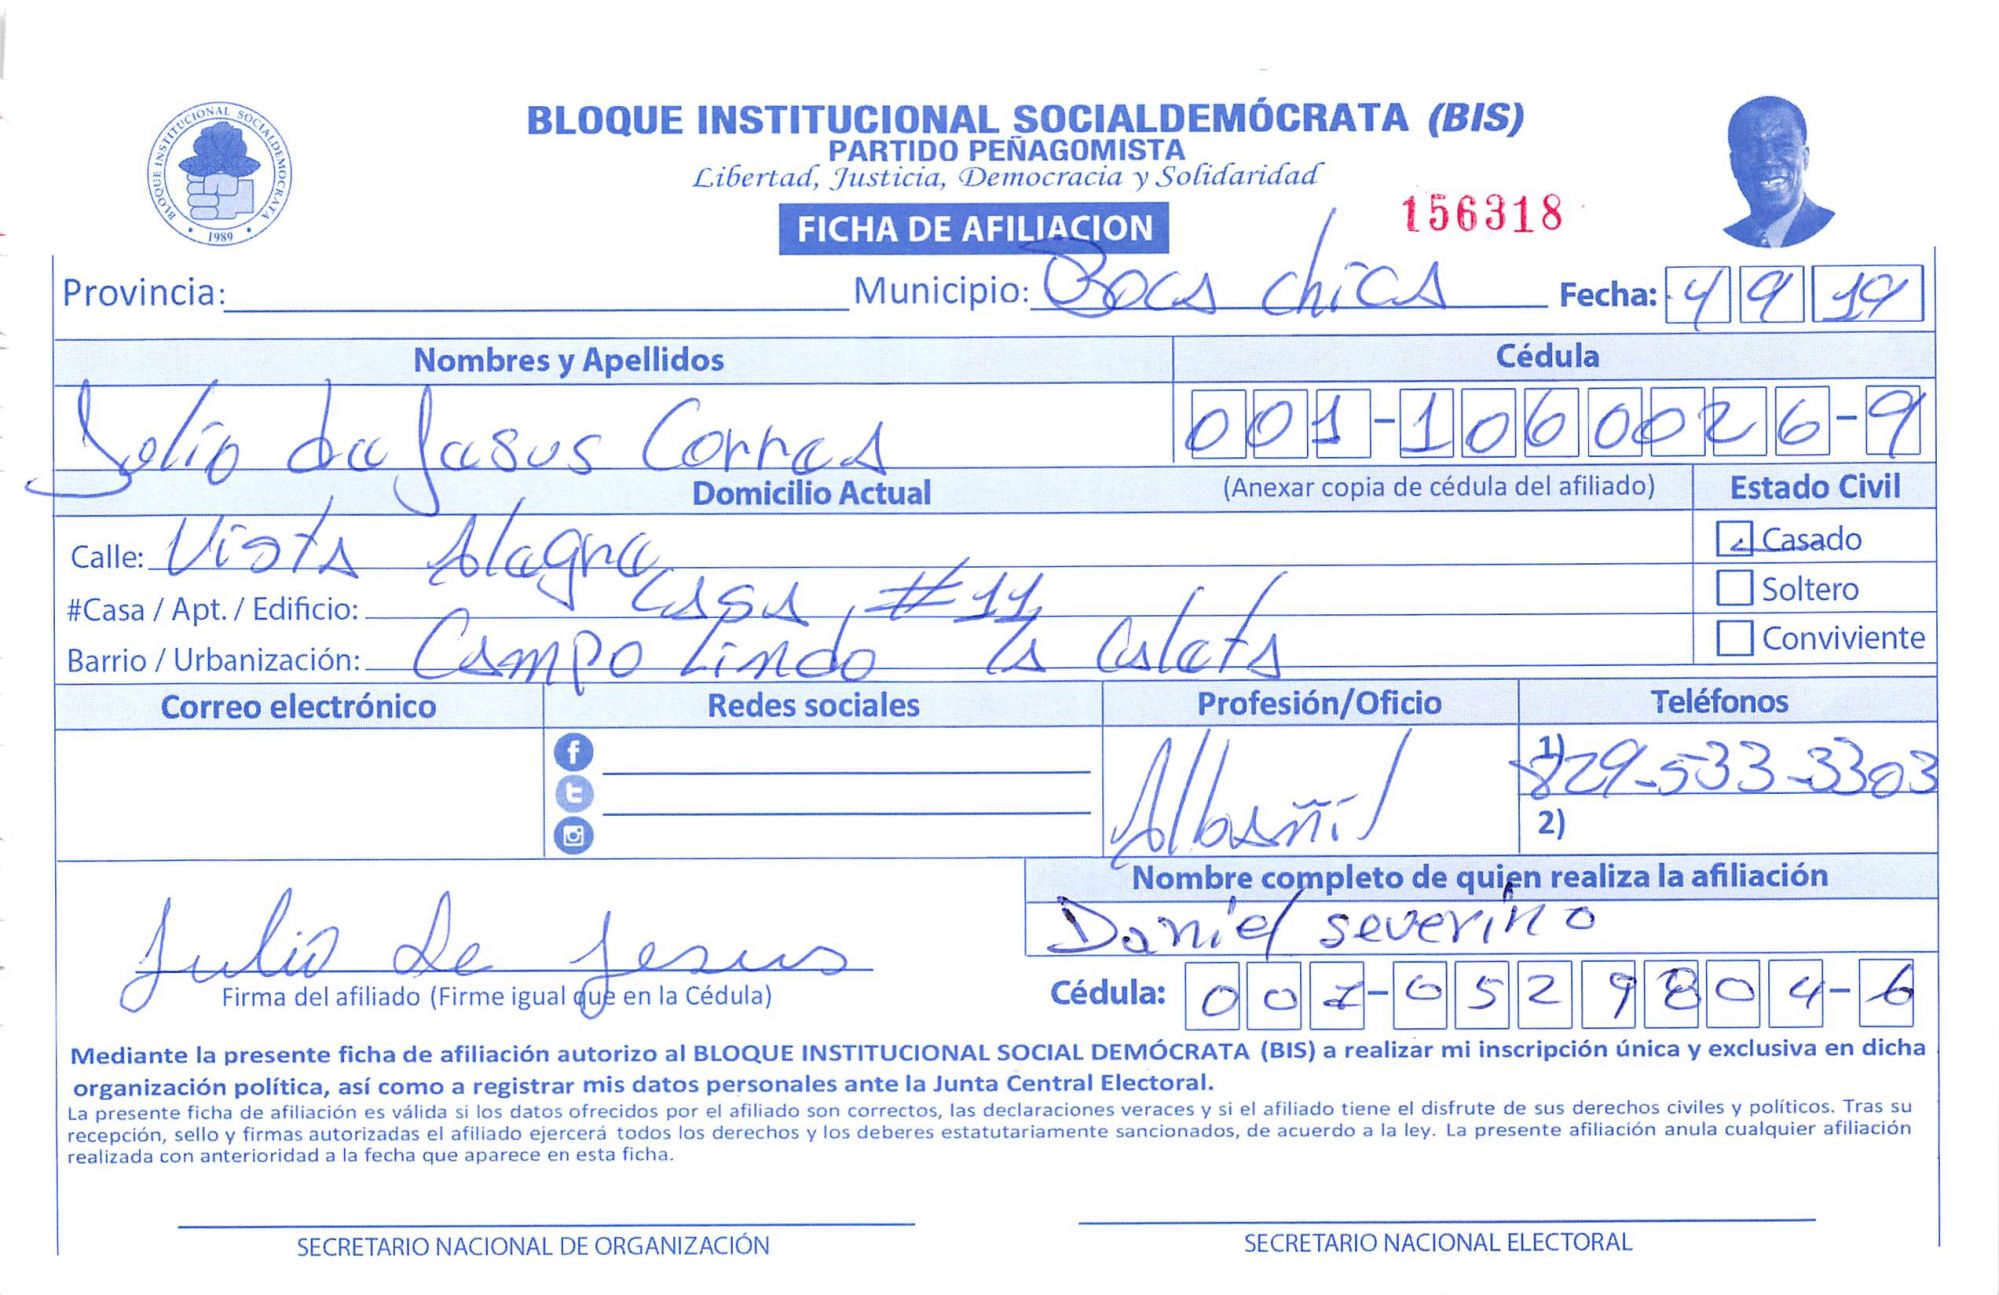 BLOQUE INSTITUCIONAL SOCIALDEMOCRATA
1989
BLOQUE INSTITUCIONAL SOCIALDEMÓCRATA (BIS)
PARTIDO PEÑAGOMISTA
Libertad, Justicia, Democracia y Solidaridad
FICHA DE AFILIACION
156318
Provincia: Municipio: Boca chica Fecha: 4 9 19
Nombres y Apellidos Cédula
Julio de Jesus Correa 001-1060026-9
Domicilio Actual (Anexar copia de cédula del afiliado) Estado Civil
Calle: Vista Alegre Casado
#Casa / Apt. / Edificio: Casa #11 Soltero
Barrio / Urbanización: Campo Lindo La Caleta Conviviente
Correo electrónico Redes sociales Profesión/Oficio Teléfonos
Albañil
1) 829-533-3303
2)
Nombre completo de quien realiza la afiliación
Daniel severino
Julio de Jesus
Firma del afiliado (Firme igual que en la Cédula)
Cédula: 001-0529804-6
Mediante la presente ficha de afiliación autorizo al BLOQUE INSTITUCIONAL SOCIAL DEMÓCRATA (BIS) a realizar mi inscripción única y exclusiva en dicha
organización política, así como a registrar mis datos personales ante la Junta Central Electoral.
La presente ficha de afiliación es válida si los datos ofrecidos por el afiliado son correctos, las declaraciones veraces y si el afiliado tiene el disfrute de sus derechos civiles y políticos. Tras su
recepción, sello y firmas autorizadas el afiliado ejercerá todos los derechos y los deberes estatutariamente sancionados, de acuerdo a la ley. La presente afiliación anula cualquier afiliación
realizada con anterioridad a la fecha que aparece en esta ficha.
SECRETARIO NACIONAL DE ORGANIZACIÓN SECRETARIO NACIONAL ELECTORAL